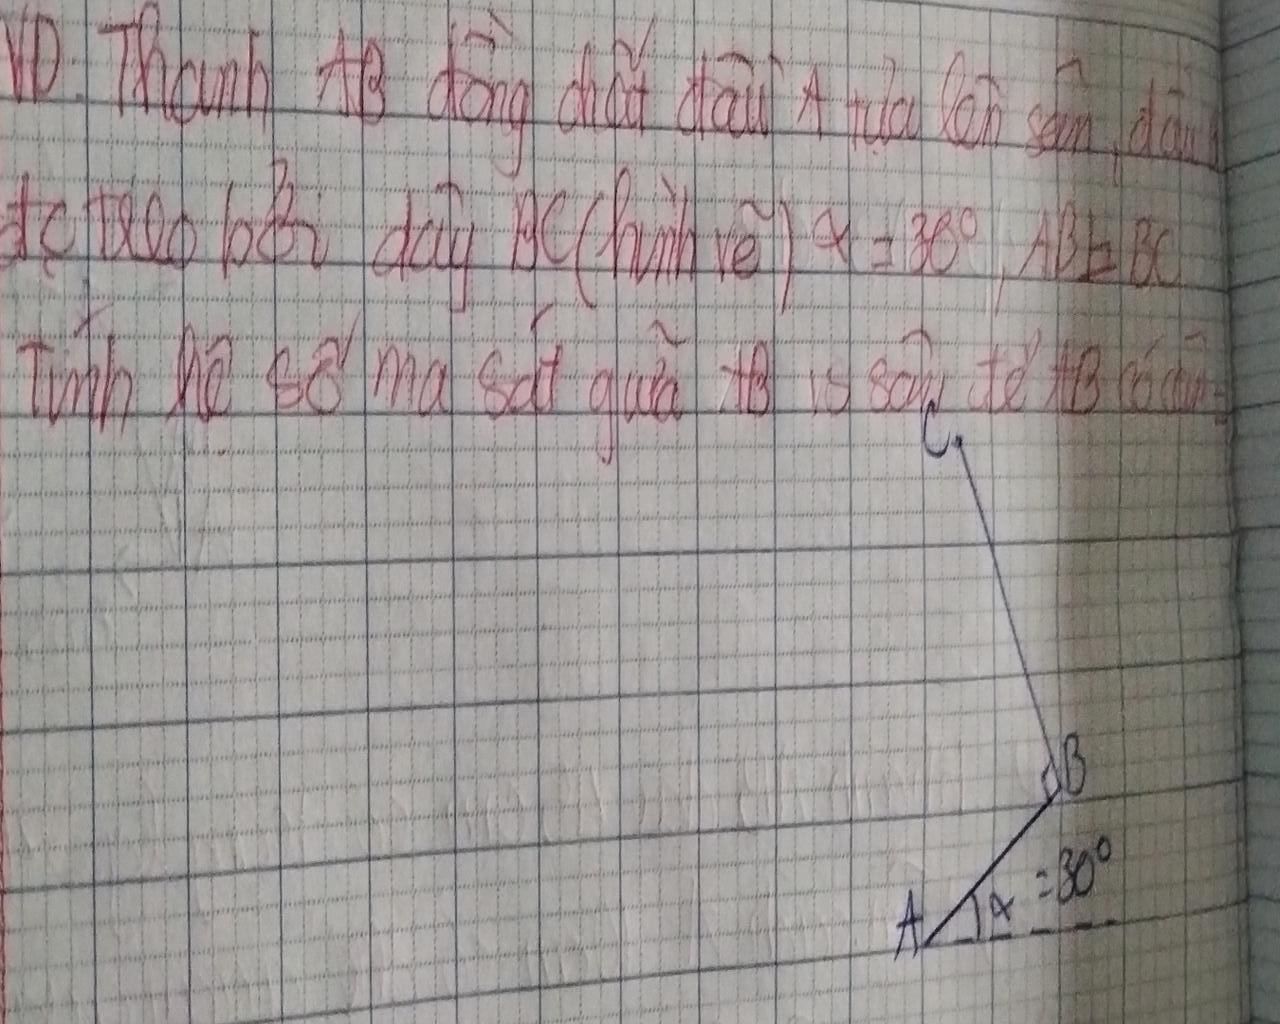 VD. Thanh AB đồng chất đầu A tựa lên sàn, đầu
đc treo bởi dây BC (hình vẽ) α = 30°, AB ⊥ BC
Tính hệ số ma sát giữa AB vs sàn để AB có cân =
C
B
α = 30°
A